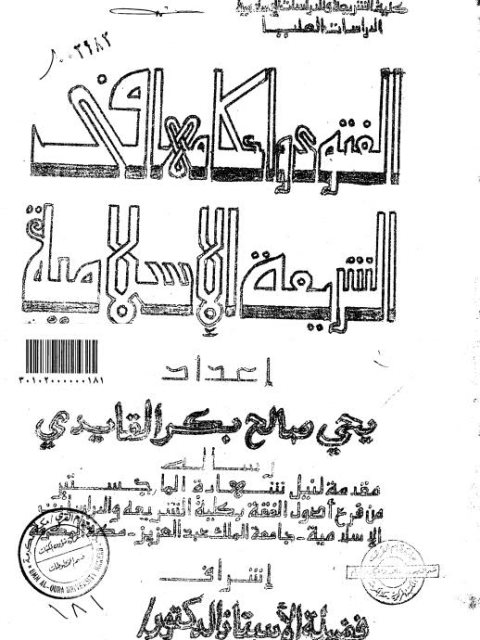 كلية الشريعة والدراسات الإسلامية
الدراسات العليا
٠٠٢٩٨٣
الفتوى وأحكامها في
الشريعة الإسلامية
٣٠١٠٢٠٠٠٠٠٠١٨١
إعداد
يحي صالح بكر القايدي
رسالة
مقدمة لنيل شهادة الماجستير
من فرع أصول الفقة بكلية الشريعه والدراسات
الإسلامية - جامعة الملك عبد العزيز - مكة
UMM AL-QURA UNIVERSITY
١٨١
إشراف
فضيلة الأستاذ الدكتور/